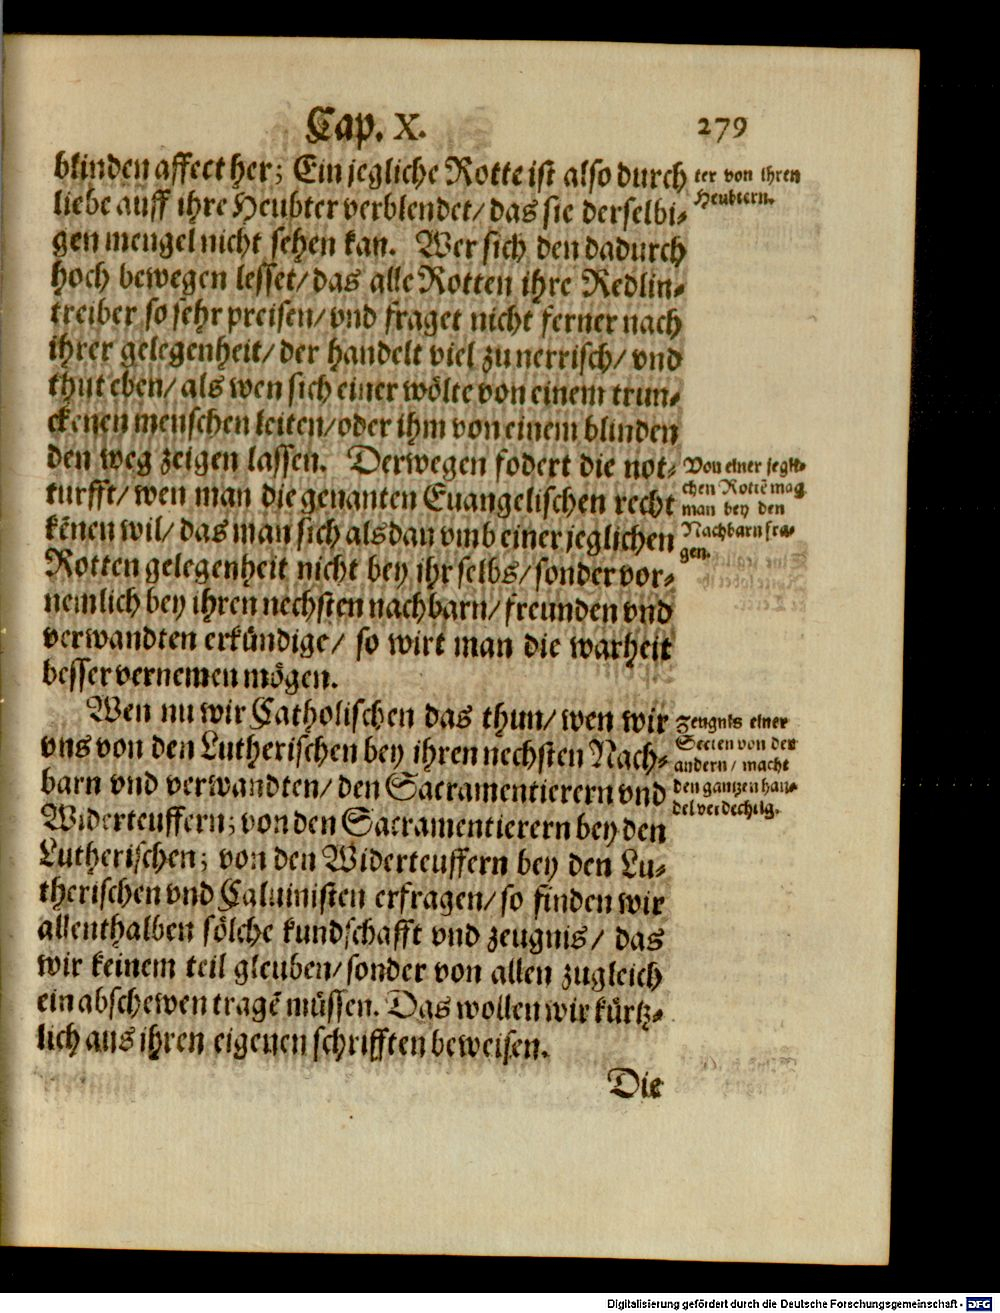 Cap. X. 279
blinden affect her; Ein jegliche Rotte ist also durch
liebe auff ihre Heubter verblendet/ das sie derselbi-
gen mengel nicht sehen kan. Wer sich den dadurch
hoch bewegen lesset/ das alle Rotten ihre Redlin-
treiber so sehr preisen/ vnd fraget nicht ferner nach
ihrer gelegenheit/ der handelt viel zu nerrisch/ vnd
thut eben/ als wen sich einer wölte von einem trun-
ckenen menschen leiten/ oder ihm von einem blinden
den weg zeigen lassen. Derwegen fodert die not-
turfft/ wen man die genanten Euangelischen recht
kēnen wil/ das man sich alsdan vmb einer jeglichen
Rotten gelegenheit nicht bey ihr selbs/ sonder vor-
nemlich bey ihren nechsten nachbarn/ freunden vnd
verwandten erkündige/ so wirt man die warheit
besser vernemen mögen.
Wen nu wir Catholischen das thun/ wen wir
vns von den Lutherischen bey ihren nechsten Nach-
barn vnd verwandten/ den Sacramentierern vnd
Widerteuffern; von den Sacramentierern bey den
Lutherischen; von den Widerteuffern bey den Lu-
therischen vnd Caluinisten erfragen/ so finden wir
allenthalben sölche kundschafft vnd zeugnis/ das
wir keinem teil gleuben/ sonder von allen zugleich
ein abschewen tragē müssen. Das wollen wir kürtz-
lich aus ihren eigenen schrifften beweisen.
Die
ter von ihren
Heubtern.
Von einer jegli-
chen Rottē mag
man bey den
Nachbarn fra-
gen.
Zeugnis einer
Secten von der
andern/ macht
den gantzen han-
del verdechtig.
Digitalisierung gefördert durch die Deutsche Forschungsgemeinschaft - DFG